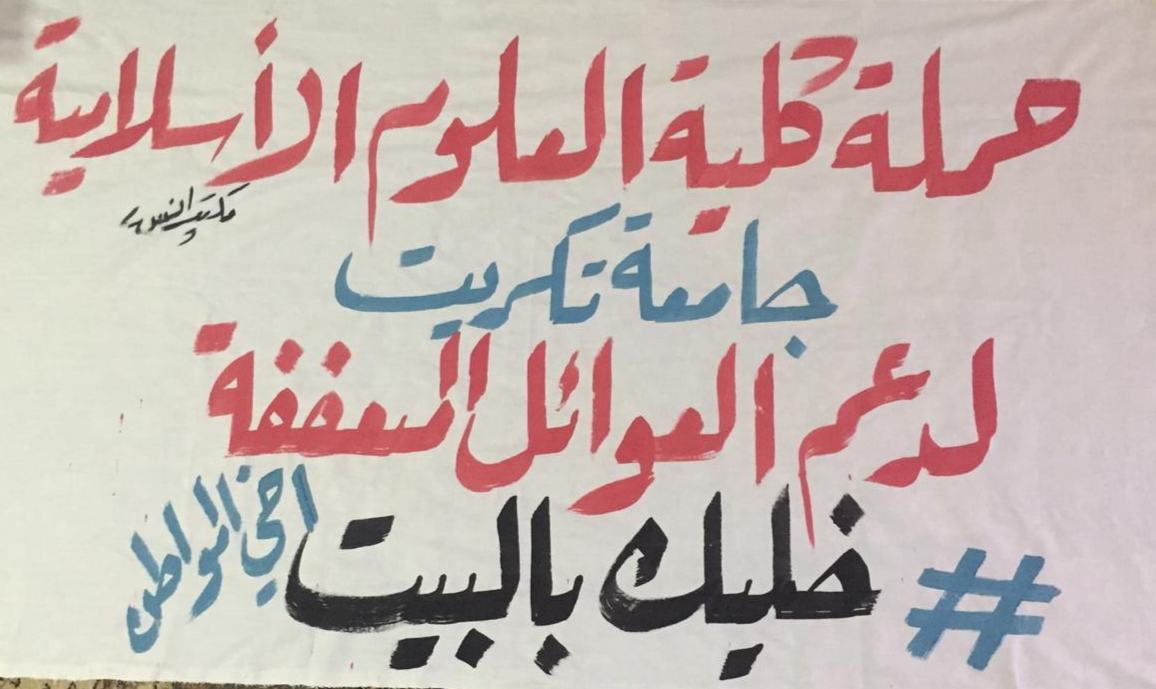 حملة كلية العلوم الأسلامية
مكتب
جامعة تكريت
لدعم العوائل المتعففة
# خليك بالبيت
اخي المواطن